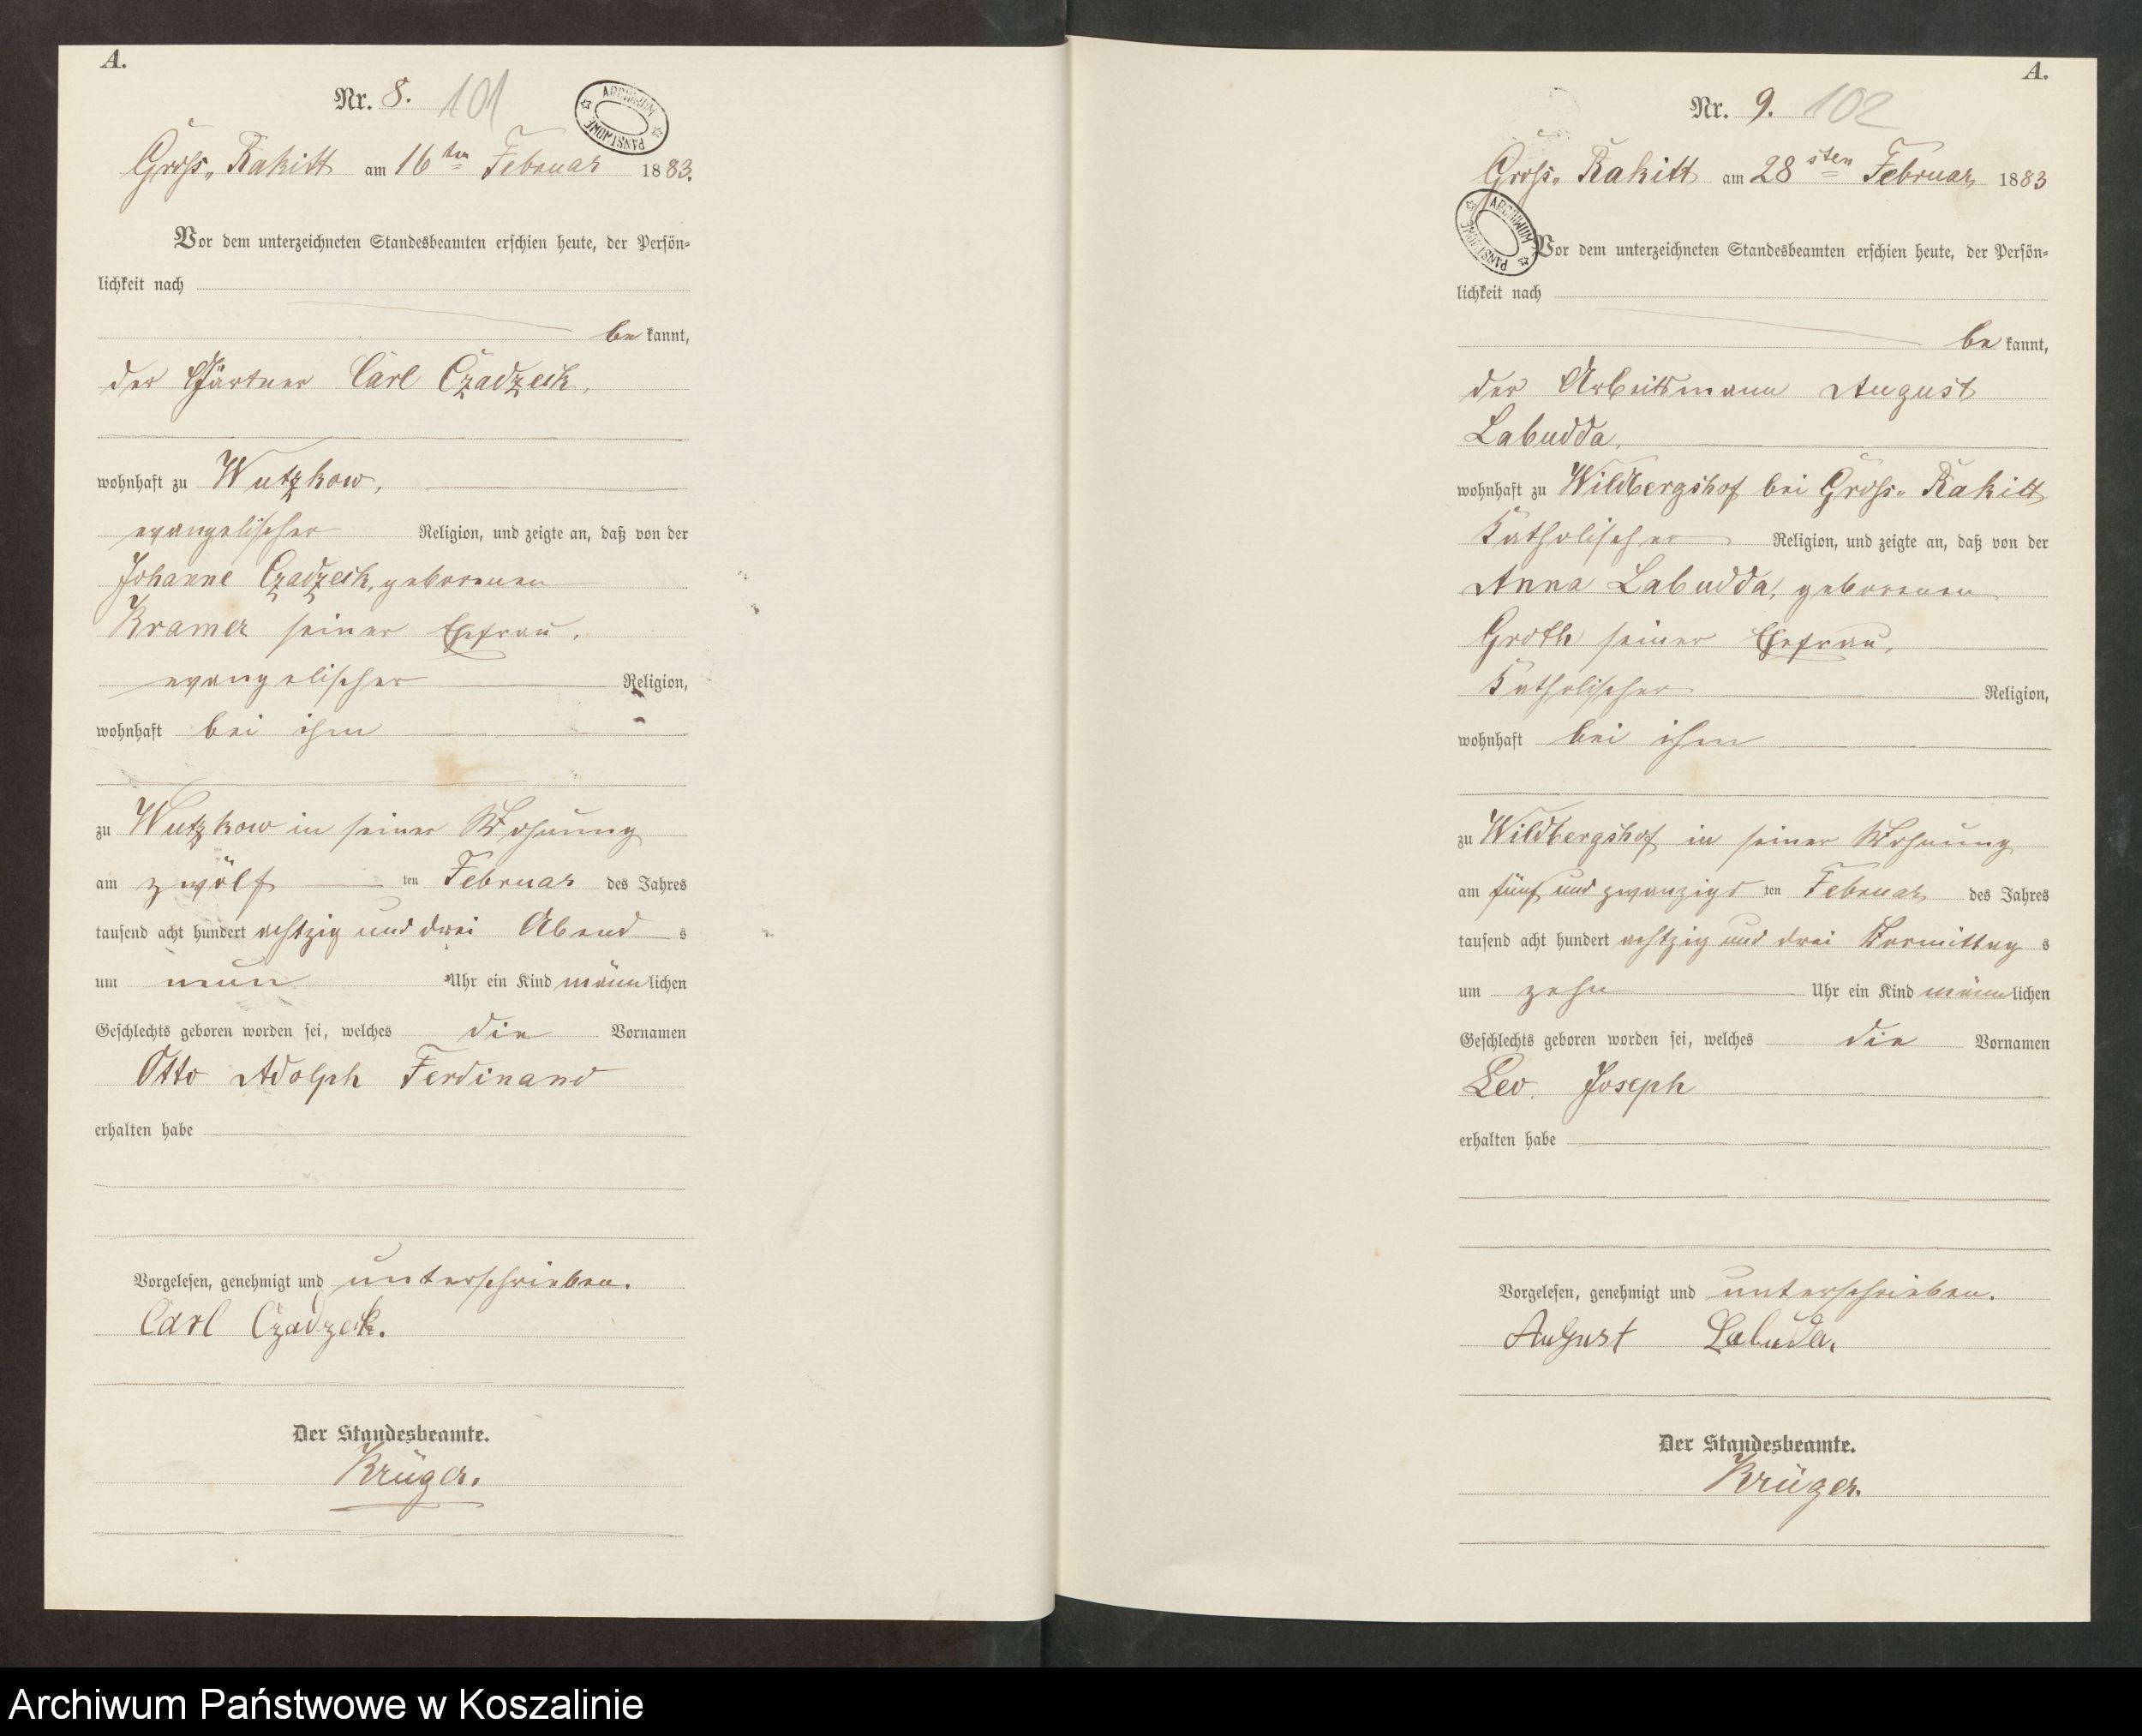 A.
Nr. 8. 101
ARCHIWUM PAŃSTWOWE
Gross-Rakitt am 16ten Februar 1883.
Vor dem unterzeichneten Standesbeamten erschien heute, der Persön-
lichkeit nach
bekannt,
der Gärtner Carl Czadzeck,
wohnhaft zu Wutzkow,
evangelischer Religion, und zeigte an, daß von der
Johanne Czadzeck, geborenen
Kramer seiner Ehefrau,
evangelischer Religion,
wohnhaft bei ihm
zu Wutzkow in seiner Wohnung
am zwölf ten Februar des Jahres
tausend acht hundert achtzig und drei Abends
um neun Uhr ein Kind männlichen
Geschlechts geboren worden sei, welches die Vornamen
Otto Adolph Ferdinand
erhalten habe
Vorgelesen, genehmigt und unterschrieben.
Carl Czadzeck.
Der Standesbeamte.
Krüger.
A.
Nr. 9. 102
Gross-Rakitt am 28sten Februar 1883
ARCHIWUM PAŃSTWOWE
Vor dem unterzeichneten Standesbeamten erschien heute, der Persön-
lichkeit nach
bekannt,
der Arbeitsmann August
Labudda,
wohnhaft zu Wildbergshof bei Gross-Rakitt
katholischer Religion, und zeigte an, daß von der
Anna Labudda, geborenen
Groth seiner Ehefrau,
katholischer Religion,
wohnhaft bei ihm
zu Wildbergshof in seiner Wohnung
am fünf und zwanzigs ten Februar des Jahres
tausend acht hundert achtzig und drei Vormittags
um zehn Uhr ein Kind männlichen
Geschlechts geboren worden sei, welches die Vornamen
Leo Joseph
erhalten habe
Vorgelesen, genehmigt und unterschrieben.
August Labuda.
Der Standesbeamte.
Krüger.
Archiwum Państwowe w Koszalinie